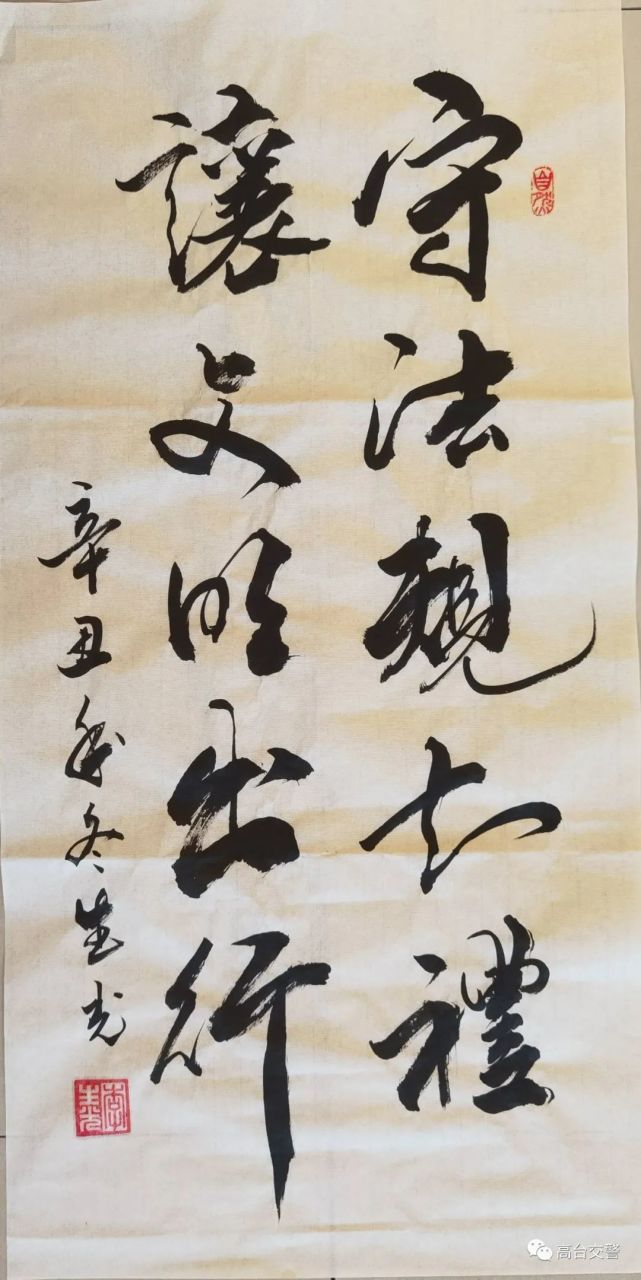 守法規知禮
讓文明出行
辛丑年冬生光
高台交警